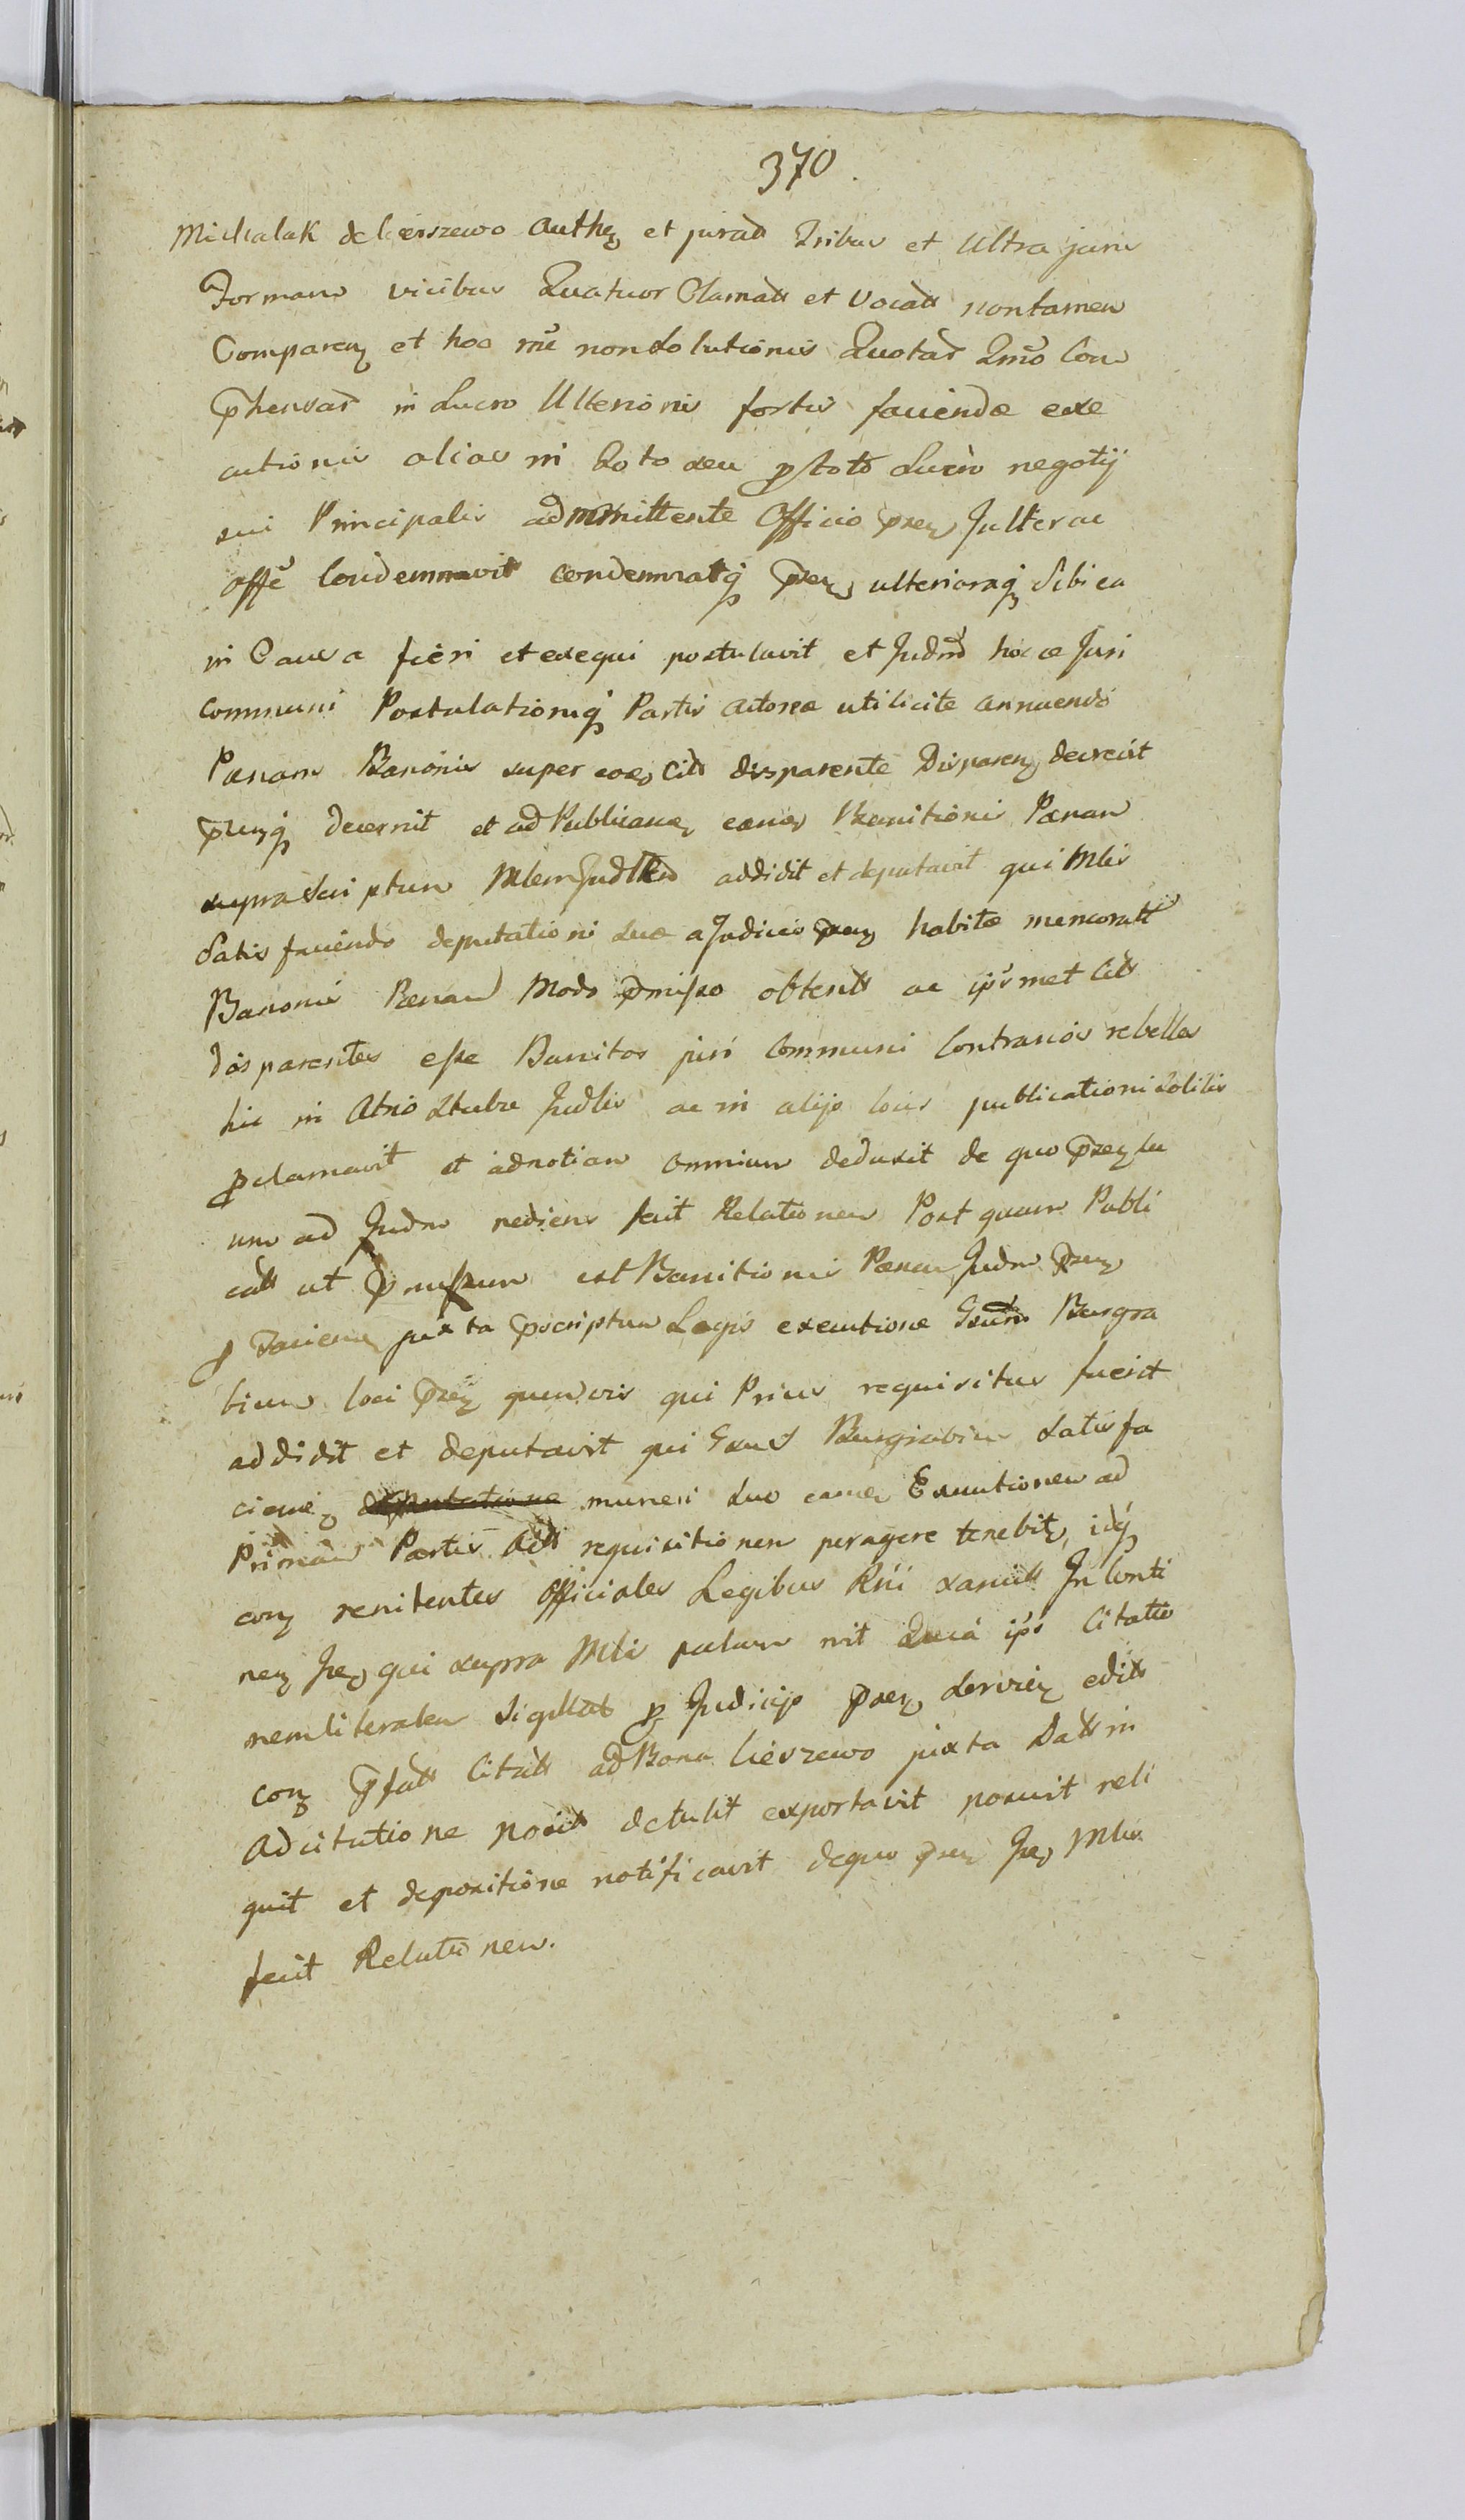 370.
Michalak de Cieszewo Authen et jurad Tribus et Ultra juris
Formam vicibus Quatuor Clamatt et Vocatt nontamen
Comparen et hoc rne nonsolutionis Quotar Qmo Com
phensar in Lucro Ulterioris fortis faciendæ exe
cutionis alias in toto seu p toto Lucro negotij
sui Principalis admittente Officio psen Jultter ac
offe Condemnavit condemnatq psen ulterioraq Sibi ea
in Causa fieri et exequi postulavit et Judm hocce Juri
communi Postulationiq Partis Actoreæ utilicite annuendo
Pænam Banonis super eos Citt disparente Disparen decrevit
psenq decernit et ad Publicanæ eanæ Banitionis Pænam
suprascriptum Mlem Judllem addidit et deputavit qui Mlis
Satisfaciendo deputationi suæ a Judicio psen habitæ memoratt
Banonis Pænam Modo pmisso obtentt ac ipsmet Citt
disparentes esse Banitos juri Communi Contrarios rebelles
hic in Atrio Stubæ Judlis ac in alijs locis publicationi Solitis
pclamavit et adnotiam omnium deduxit de quo psen lu
um ad Judm rediens fecit Relationem Post quam Publi
catt ut pmissum est Banitionis Pænam Judm psen
p Facien juxta pscriptum Legis executione Gsum Burgra
bium loci psen quemvis qui Prius requisitus fuerit
addidit et deputavit qui Gsus Burgrabius satisfa
cieni deputatione muneri suo eanæ Executionem ad
Primam Partis Actt requisitionem peragere tenebit, idq
con renitentes Officiales Legibus Rni sancitt In Conti
nen Jre qui supra Mlis palam rit Quia ips Citatio
nem literalem Sigillat p Judicijs psen Servien editt
con pfatt Citatt ad Bona Cieszewo juxta Datt in
Adcitatione posit detulit exportavit posuit reli
quit et depositione notificavit dequo psen Jre Mlis
fecit Relationem.